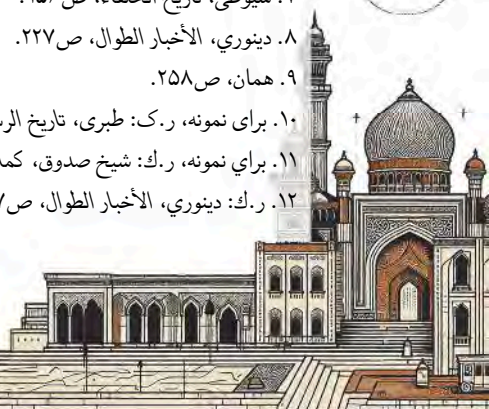 تاریخ الخلفاء، ص
۸. دینوري، الأخبار الطوال، ص۲۲۷.
۹. همان، ص۲۵۸.
۱۰. برای نمونه، ر.ک: طبری، تاریخ
۱۱. براي نمونه، ر.ك: شیخ صدوق،
۱۲. ر.ك: دینوري، الأخبار الطوال،